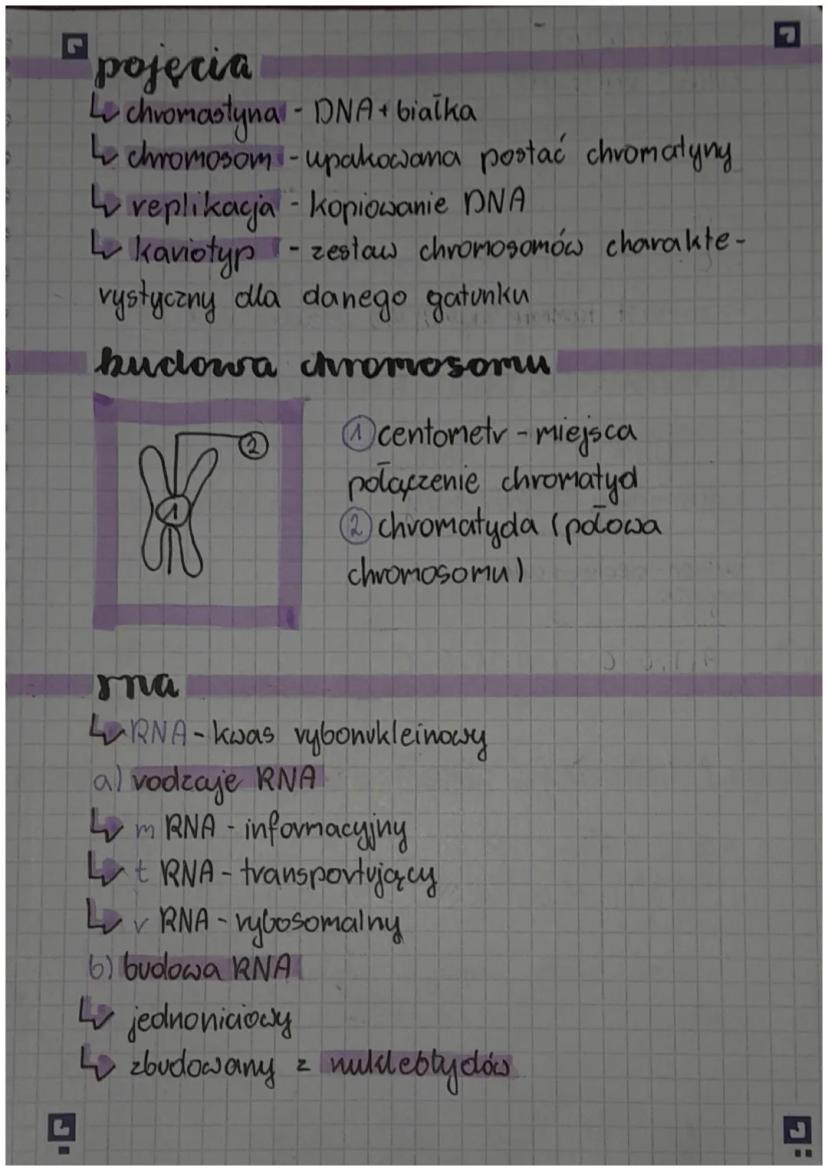 pojęcia
↳ chromastyna - DNA + białka
↳ chromosom - upakowana postać chromatyny
↳ replikacja - kopiowanie DNA
↳ kariotyp - zestaw chromosomów charakte-
rystyczny dla danego gatunku
budowa chromosomu
2
1
① centometr - miejsca
połączenie chromatyd
② chromatyda (połowa
chromosomu)
rna
↳ RNA - kwas rybonukleinowy
a) rodzaje RNA
↳ m RNA - informacyjny
↳ t RNA - transportujący
↳ r RNA - rybosomalny
b) budowa RNA
↳ jednoniciowy
↳ zbudowany z nukleotydów